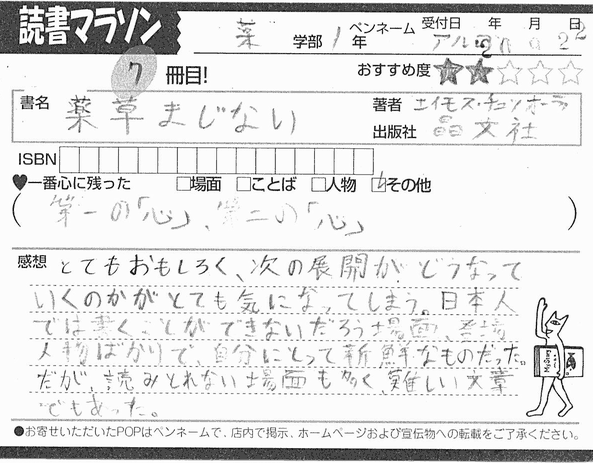 読書マラソン
薬 学部 1 年 ペンネーム アルヨ 受付日 年 月 日 22
7 冊目! おすすめ度 ★★☆☆☆
書名 薬草まじない
著者 エイモス・チュツオーラ
出版社 晶文社
ISBN
♥一番心に残った □場面 □ことば □人物 ☑その他
(第一の「心」、第二の「心」)
感想 とてもおもしろく、次の展開がどうなって
いくのかがとても気になってしまう。日本人
では書くことができないだろう場面、登場
人物ばかりで、自分にとって新鮮なものだった。
だが、読みとれない場面も多く、難しい文章
でもあった。
●お寄せいただいたPOPはペンネームで、店内で掲示、ホームページおよび宣伝物への転載をご了承ください。